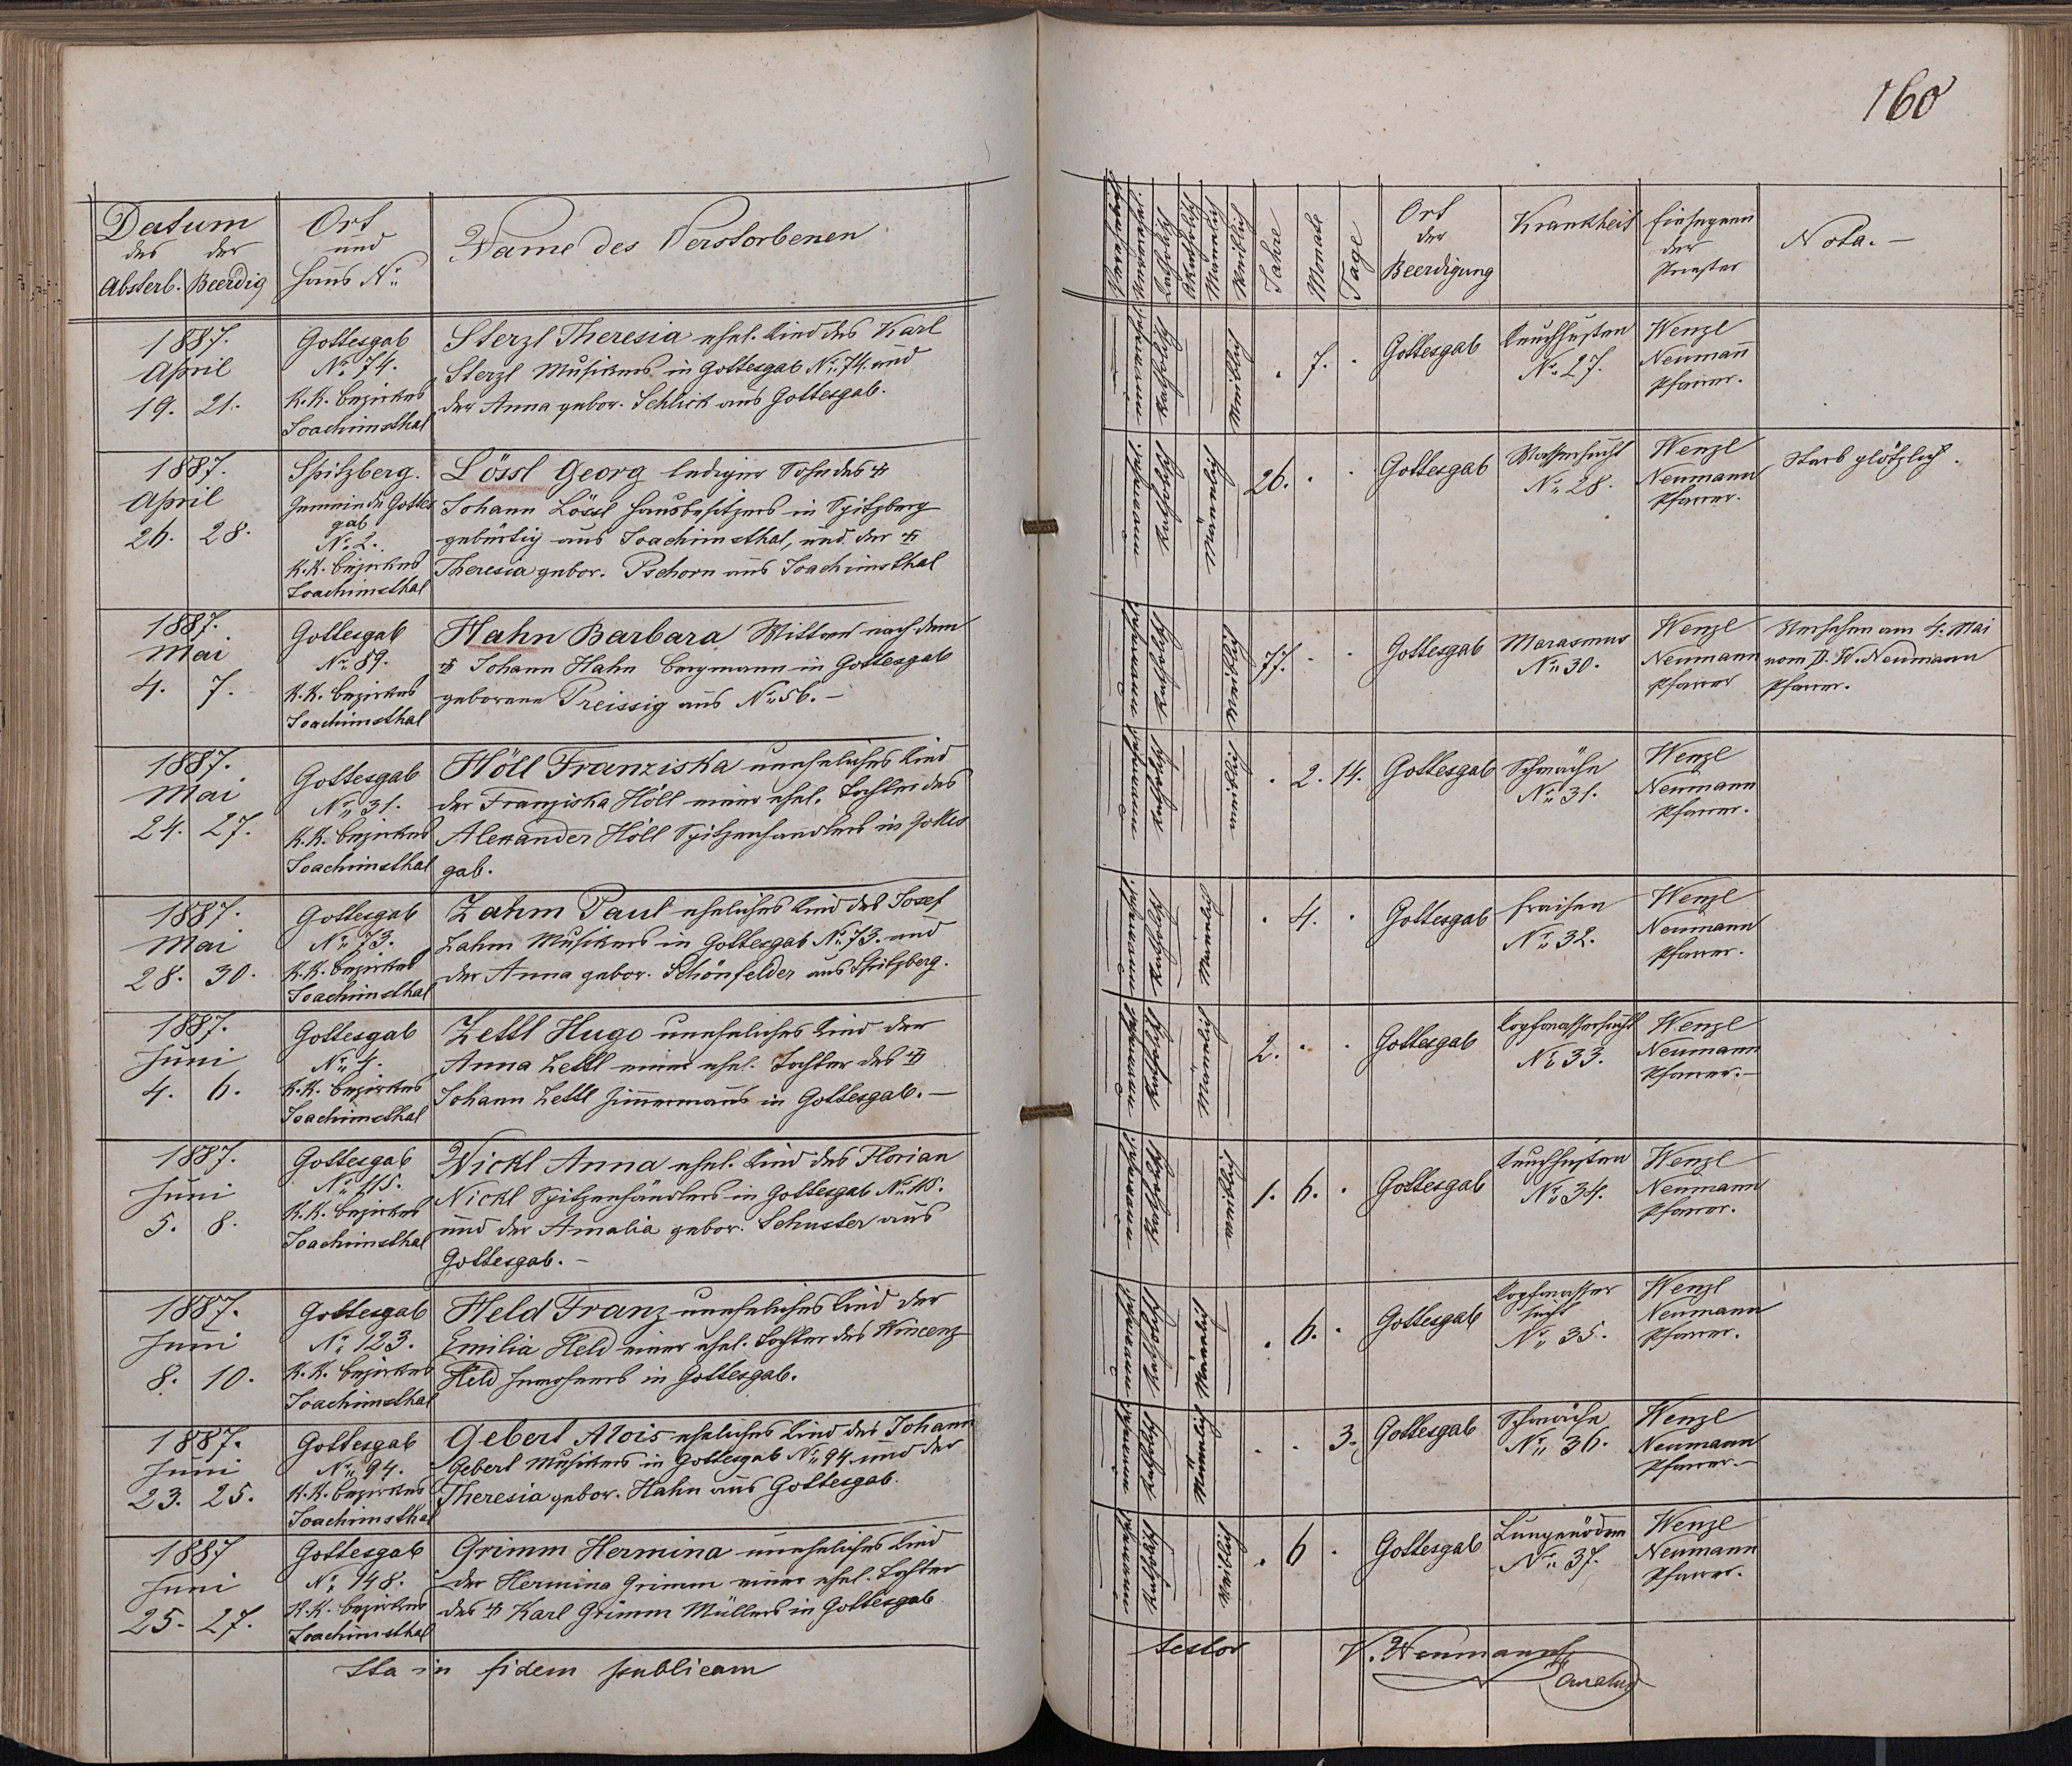 160
Datum
des der
Absterb. Beerdig
Ort
und
Haus No
Name des Verstorbenen
Jahre
Monate
Tage
Ort
der
Beerdigung
Krankheit
Einsegnen
der
Priester
Nota. —
1887.
April
19. 21.
Gottesgab
No 74.
K.K. Bezirkes
Joachimsthal
Sterzl Theresia ehel. Kind des Karl
Sterzl Musikers in Gottesgab No 74. und
der Anna gebor. Schlick aus Gottesgab.
Katholisch
Weiblich
. 7. .
Gottesgab
Keuchhusten
No 27.
Wenzl
Neumann
Pfarrer.
1887.
April
26. 28.
Spitzberg.
Gemeinde Gottes
gab
No 2.
K.K. Bezirkes
Joachimsthal
Lössl Georg lediger Sohn des †
Johann Lössl Hausbesitzers in Spitzberg
gebürtig aus Joachimsthal, und der †
Theresia gebor. Pschorn aus Joachimsthal
Katholisch
Männlich
26. . .
Gottesgab
Wassersucht
No 28.
Wenzl
Neumann
Pfarrer.
Starb plötzlich.
1887.
Mai
4. 7.
Gottesgab
No 89.
K.K. Bezirkes
Joachimsthal
Hahn Barbara Wittwe nach dem
† Johann Hahn Bergmann in Gottesgab
geborene Preissig aus No 56. —
Katholisch
Weiblich
77. . .
Gottesgab
Marasmus
No 30.
Wenzl
Neumann
Pfarrer
Versehen am 4. Mai
vom P. W. Neumann
Pfarrer.
1887.
Mai
24. 27.
Gottesgab
No 31.
K.K. Bezirkes
Joachimsthal
Höll Franziska uneheliches Kind
der Franziska Höll einer ehel. Tochter des
Alexander Höll Spitzenhandlers in Gottes
gab.
Katholisch
weiblich
. 2. 14.
Gottesgab
Schwäche
No 31.
Wenzl
Neumann
Pfarrer.
1887.
Mai
28. 30.
Gottesgab
No 73.
K.K. Bezirkes
Joachimsthal
Zahm Paul eheliches Kind des Josef
Zahm Musikers in Gottesgab No 73. und
der Anna gebor. Schönfelder aus Spitzberg.
Katholisch
Männlich
. 4. .
Gottesgab
Fraisen
No 32.
Wenzl
Neumann
Pfarrer.
1887.
Juni
4. 6.
Gottesgab
No 4.
K.K. Bezirkes
Joachimsthal
Zettl Hugo uneheliches Kind der
Anna Zettl einer ehel. Tochter des †
Johann Zettl Zimmermanns in Gottesgab. —
Katholisch
Männlich
2. . .
Gottesgab
Kopfwassersucht
No 33.
Wenzl
Neumann
Pfarrer. —
1887.
Juni
5. 8.
Gottesgab
No 115.
K.K. Bezirkes
Joachimsthal
Nickl Anna ehel. Kind des Florian
Nickl Spitzenhändlers in Gottesgab No 115.
und der Amalia gebor. Schuster aus
Gottesgab. —
Katholisch
weiblich
1. 6. .
Gottesgab
Keuchhusten
No 34.
Wenzl
Neumann
Pfarrer.
1887.
Juni
8. 10.
Gottesgab
No 123.
K.K. Bezirkes
Joachimsthal
Held Franz uneheliches Kind der
Emilia Held einer ehel. Tochter des Wincenz
Held Inwohners in Gottesgab.
Katholisch
Männlich
. 6. .
Gottesgab
Kopfwasser
sucht
No 35.
Wenzl
Neumann
Pfarrer.
1887.
Juni
23. 25.
Gottesgab
No 94.
K.K. Bezirkes
Joachimsthal
Gebert Alois eheliches Kind des Johann
Gebert Musikers in Gottesgab No 94. und der
Theresia gebor. Hahn aus Gottesgab.
Katholisch
Männlich
. . 3.
Gottesgab
Schwäche
No 36.
Wenzl
Neumann
Pfarrer. —
1887
Juni
25. 27.
Gottesgab
No 148.
K.K. Bezirkes
Joachimsthal
Grimm Hermina uneheliches Kind
der Hermina Grimm einer ehel. Tochter
des † Karl Grimm Müllers in Gottesgab
Katholisch
Weiblich
. 6 .
Gottesgab
Lungenödem
No 37.
Wenzl
Neumann
Pfarrer.
Ita in fidem publicam
testor W. Neumann
Curatus